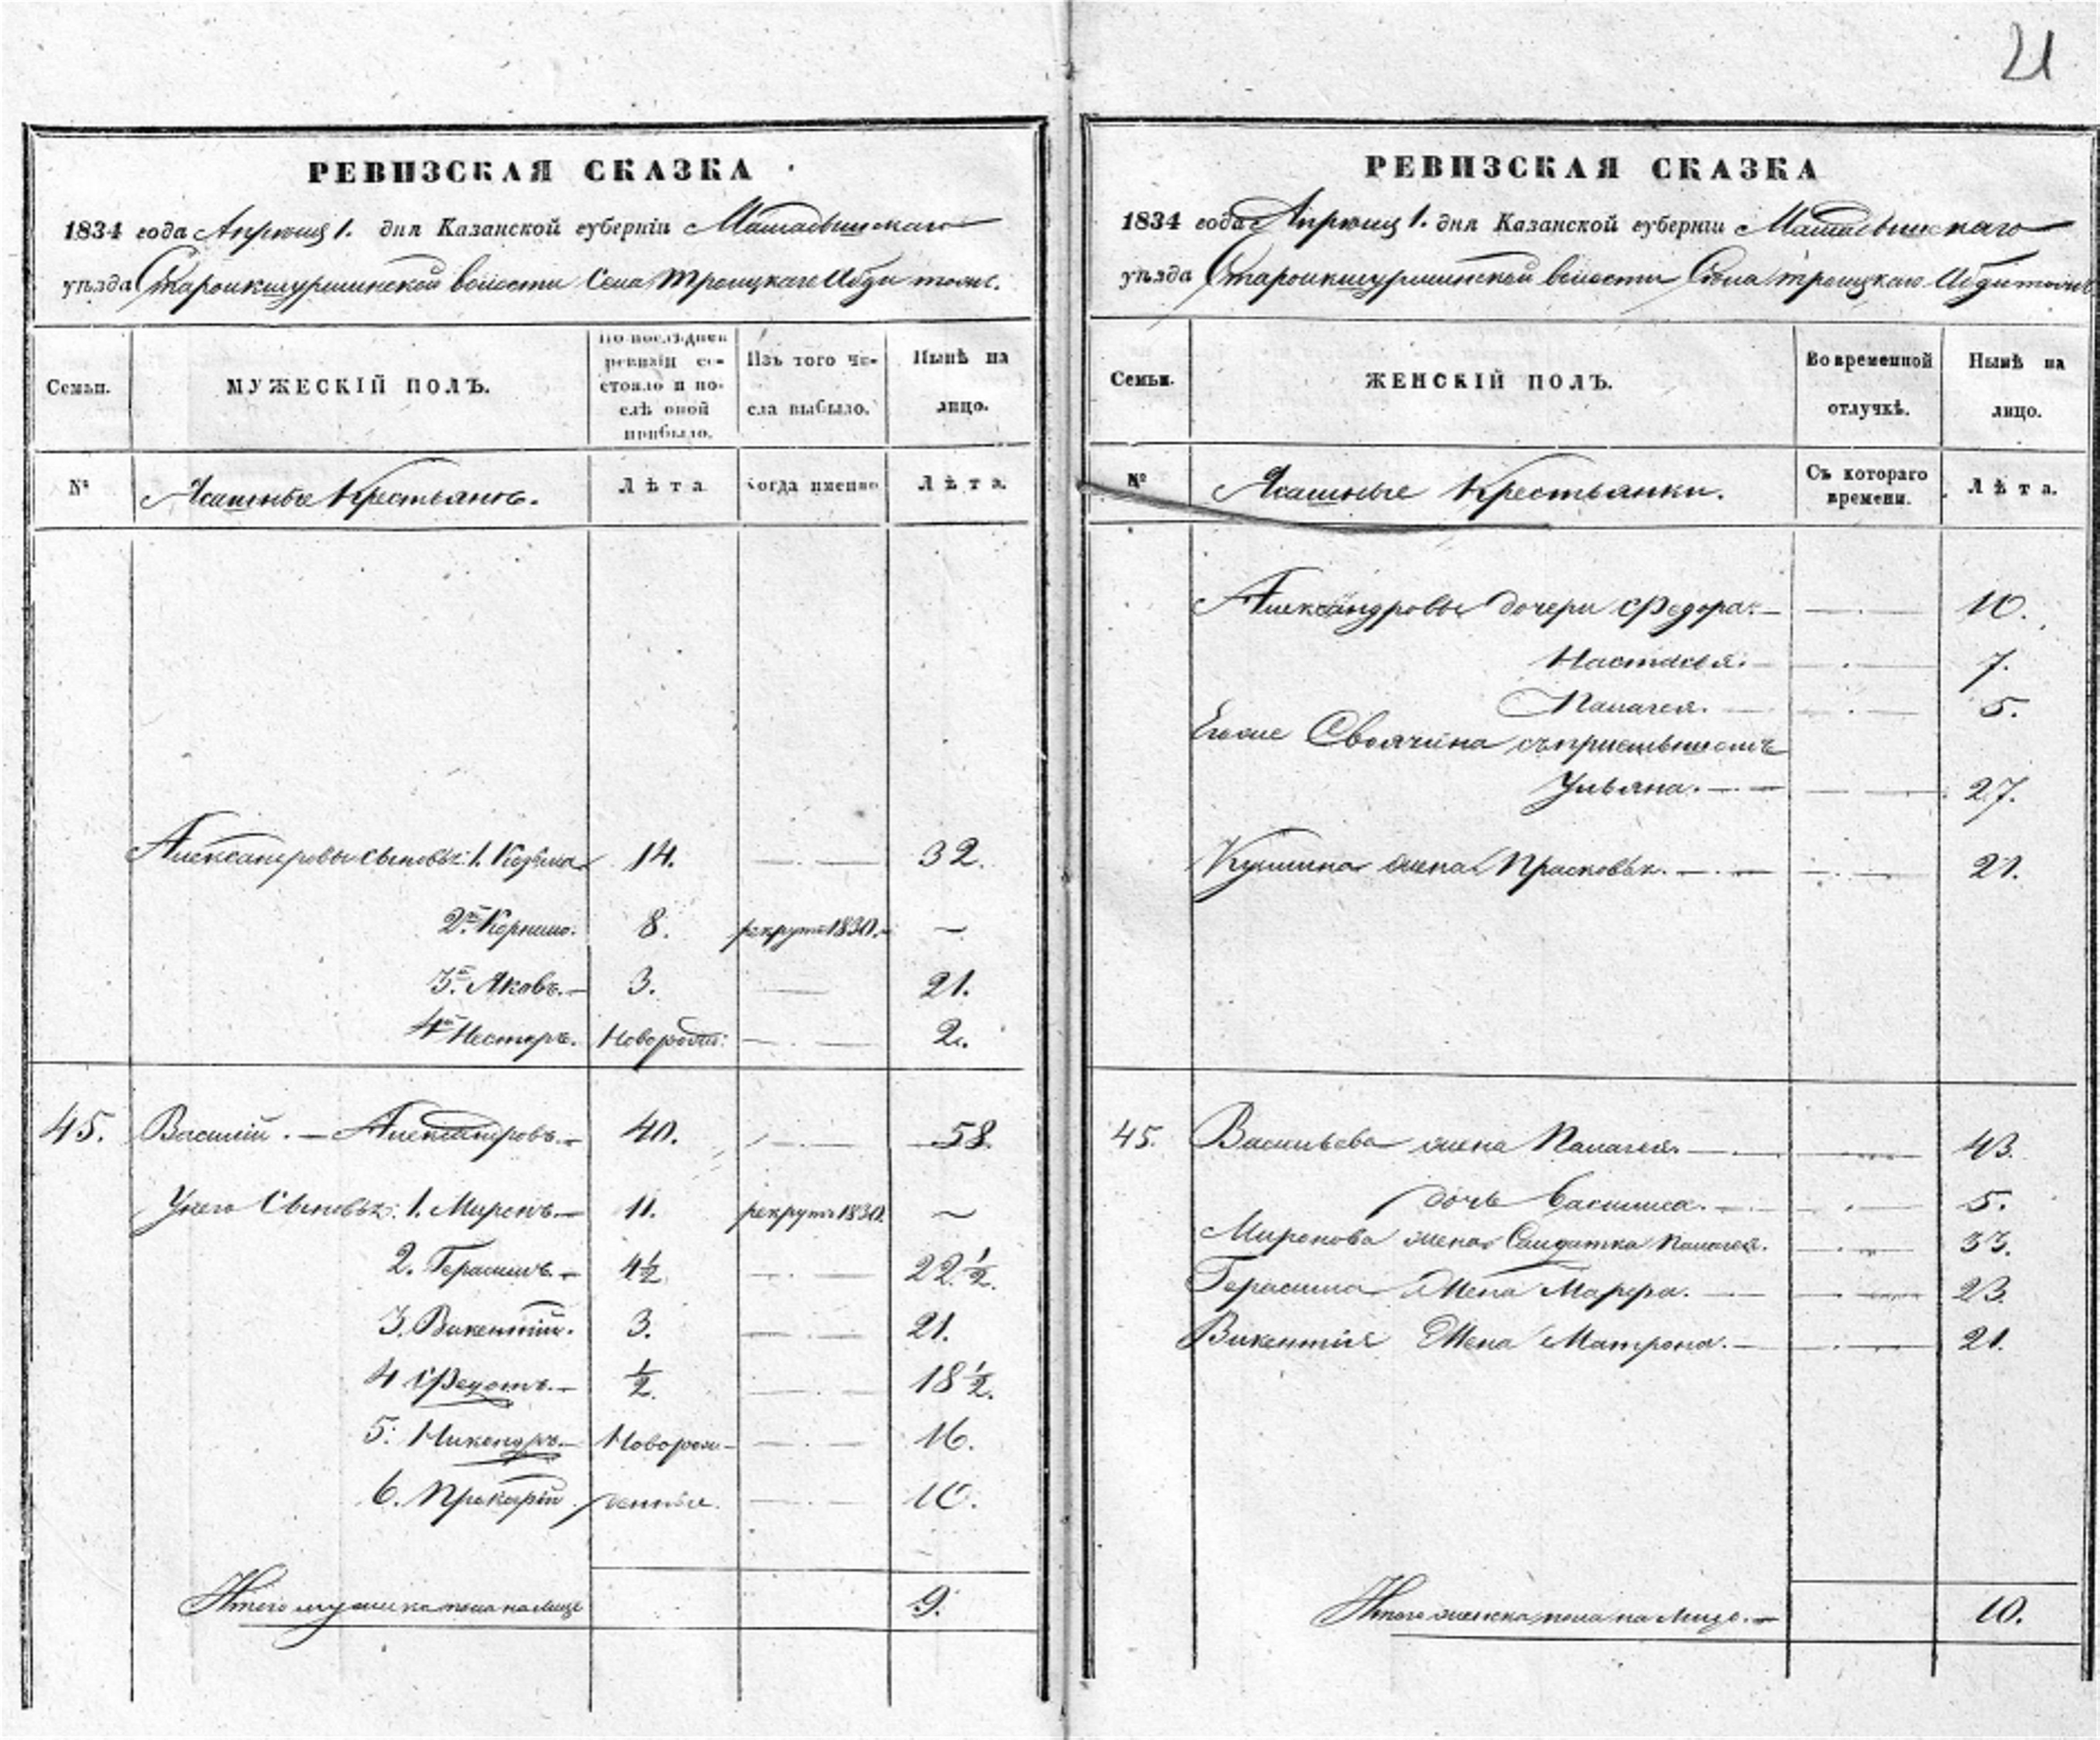 21
РЕВИЗСКАЯ СКАЗКА
1834 года Апрѣля 1. дня Казанской губерніи Мамадышскаго
уѣзда Староикшурминской волости Села Троицкаго
Семьи.
МУЖЕСКІЙ ПОЛЪ.
По послѣдней ревизіи состояло и послѣ оной прибыло.
Изъ того числа выбыло.
Нынѣ на лицо.
№
Ясашные Крестьяне.
Лѣта
Когда именно
Лѣта.
Александровы сыновья: 1. Козьма 14. 32.
2й Корнило. 8. рекрут 1830. —
3й Яковъ. 3. 21.
4й Несторъ. Новорожд: 2.
45. Василій. Александровъ. 40. 58.
У него Сыновья: 1. Миронъ 11. рекрутъ 1830. —
2. Герасимъ. 4½ 22½.
3. Викентій. 3. 21.
4 Федотъ. ½. 18½.
5. Никандръ. Новорож- 16.
6. Прокофій денные. 10.
Итого мужеска пола на лице 9.
РЕВИЗСКАЯ СКАЗКА
1834 года Апрѣля 1. дня Казанской губерніи Мамадышскаго
уѣзда Староикшурминской волости Села Троицкаго
Семьи.
ЖЕНСКІЙ ПОЛЪ.
Во временной отлучкѣ.
Нынѣ на лицо.
№
Ясашные Крестьянки.
Съ котораго времени.
Лѣта.
Александровы дочери Федора. 10.
Настасья. 7.
Палагея. 5.
Егоже Своячина
Ульяна. 27.
Кузмина жена Прасковья. 21.
45. Васильева жена Палагея. 43.
дочь Василиса. 5.
Миронова жена Салдатка Палагея. 33.
Герасима Жена Марфа. 23.
Викентія Жена Матрона. 21.
Итого женска пола на Лицо. 10.